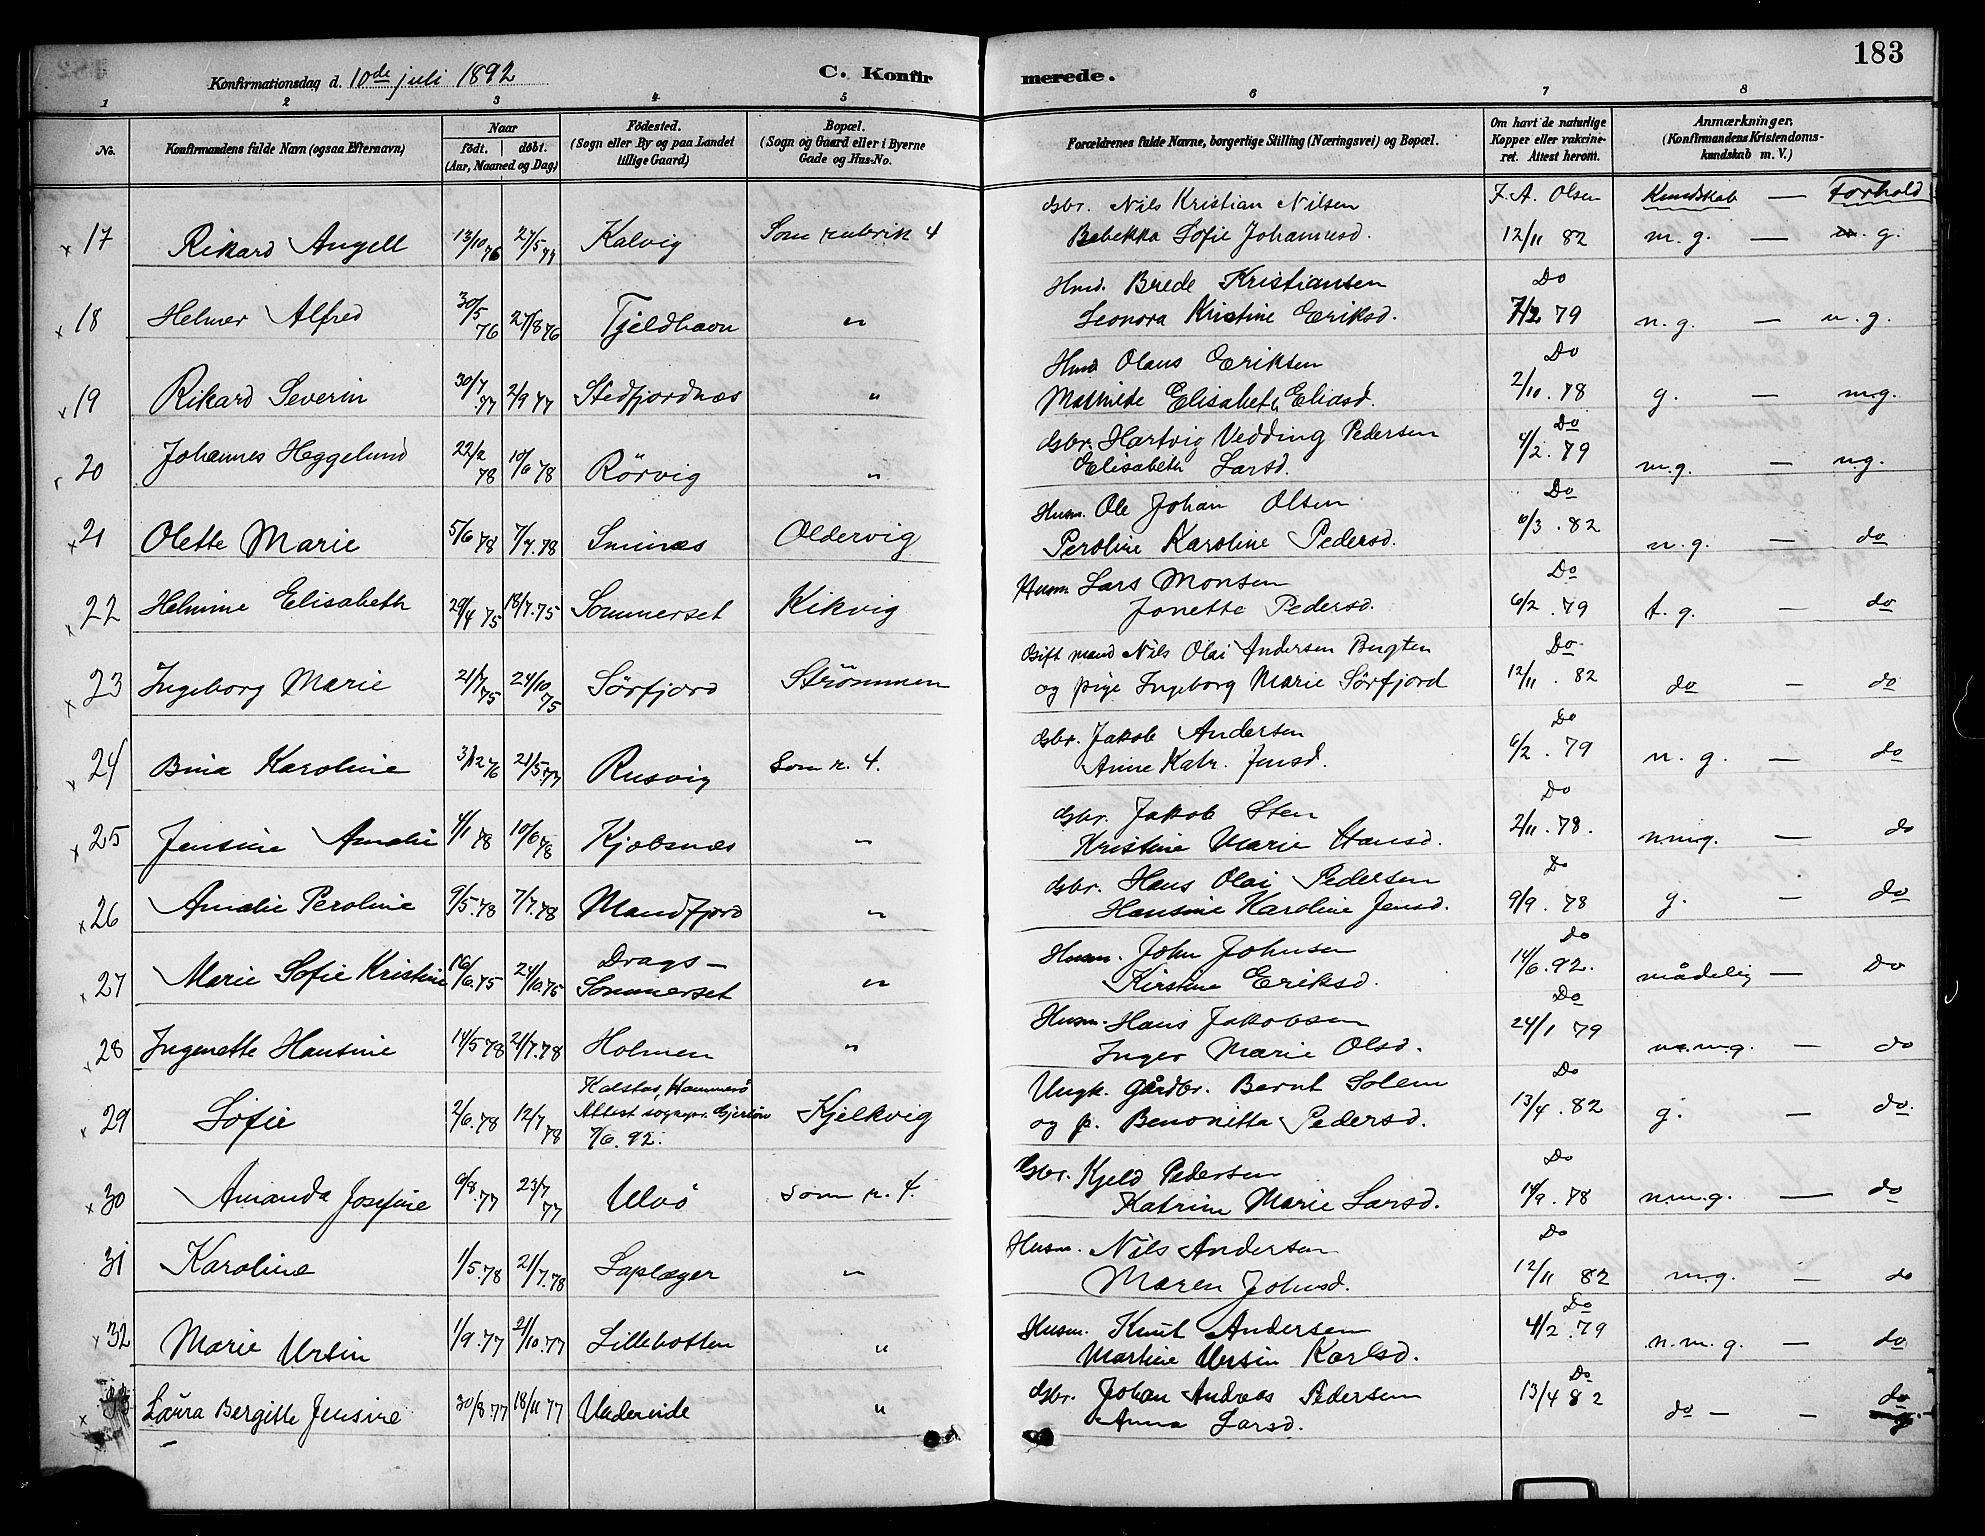 183
Konfirmationsdag d. 10de juli 1892
C. Konfir merede.
1 2 3 4 5 6 7 8
No.
Konfirmandens fulde Navn (ogsaa Efternavn)
Naar
födt. döbt.
(Aar, Maaned og Dag)
Födested.
(Sogn eller By og paa Landet
tillige Gaard)
Bopæl.
(Sogn og Gaard eller i Byerne
Gade og Hus-No.
Forældrenes fulde Navne, borgerlige Stilling (Næringsvei) og Bopæl.
Om havt de naturlige
Kopper eller vakcine-
ret. Attest herom.
Anmærkninger.
(Konfirmandens Kristendoms-
kundskab m. V.)
Gbr. Nils Kristian Nilsen F. A. Olsen Kundskab — Forhold
x 17 Rikard Angell 13/10 76 27/5 77 Kalvig Som rubrik 4 Bebekka Sofie Johannesd. 12/11 82 m. g. — g.
Hmd. Brede Kristiansen Do
x 18 Helmer Alfred 30/5 76 27/8 76 Tjeldhavn " Leonora Kristine Eriksd. 7/2 79 n. g. — n. g.
Hmd Olaus Eriksen Do
x 19 Rikard Severin 30/7 77 2/9 77 Stedfjordnæs " Mathilde Elisabeth Eliasd. 2/10. 78 g. — m.g.
Gbr. Hartvig Vedding Pedersen Do
20 Johannes Heggelund 22/2 78 10/6 78 Rörvig " Elisabeth Larsd. 4/2. 79 m.g. — n.g.
Husm. Ole Johan Olsen Do
x 21 Olette Marie 5/6 78 7/7.78 Smines Oldervig Peroline Karoline Pedersd. 6/3. 82 n.g. — do
Husm Lars Monsen Do
x 22 Helmine Elisabeth 29/4 75 18/7.75 Sommerset Kikvig Jonette Pedersd. 6/2. 79 t. g. — do
Gift mand Nils Olai Andersen Bugten Do
x 23 Ingeborg Marie 21/7 75 24/10 75 Sörfjord Strömmen og pige Ingeborg Marie Sörfjord 12/11. 82 do — do
Gbr. Jakob Andersen Do
x 24 Bina Karoline 3/12 76 21/5.77 Rusvig Som r. 4. Anne Katr. Jensd. 6/2. 79 n. g. — do
Gbr. Jakob Sten Do
x 25 Jensine Amalie 4/1 78 10/6 78 Kjobsnæs " Kristine Marie Hansd. 2/11.78. n.m.g. — do
Gbr. Hans Olai Pedersen Do
x 26 Amalie Peroline 9/5.78 7/7.78 Mandfjord " Hansine Karoline Jensd. 9/9. 78 g. — do
Husm. John Johnsen Do
x 27 Marie Sofie Kristine 16/6.75 24/10.75 Drags-
Sommerset " Kirstine Eriksd. 14/6.92. mådelig — Do
Husm. Hans Jakobsen Do
28 Ingenette Hansine 14/5 78 21/7.78 Holmen " Inger Marie Olsd. 24/1 79 n.m.g. — do
Ungk. gårdbr. Bernt Solem Do
x 29 Sofie 2/6.78 12/7 78 Kalstad, Hammerö
Attest sognepr. Gjerlöv
7/6. 92. Kjelkvig og p. Benonitta Pedersd. 13/4. 82 g. — do.
Gbr. Kjeld Pedersen Do
x 30 Amanda Josefine 9/8.77 23/7 77 Ulvö Som r. 4. Katrine Marie Larsd. 14/9.78 n.m.g. — do
Husm. Nils Andersen Do
31 Karoline 1/5.78 21/7.78 Laplæger " Maren Johnsd. 12/11 82 m.g. — do
Husm. Knut Andersen Do
x 32 Marie Ursin 1/9.77 21/10.77 Lillebotten " Martine Ursin Karlsd. 4/2.79 n.m.g. — do
Gbr. Johan Andreas Pedersen Do
x 33 Laura Bergitte Jensine 30/8.77 18/11 77 Undereide " Anna Larsd. 13/4 82 do — — do